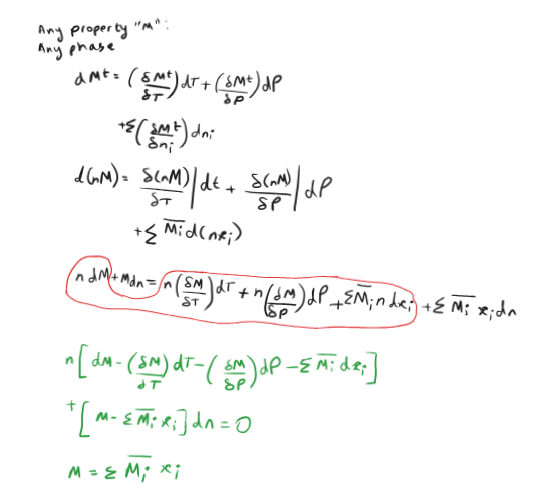 Any property "M":
Any phase
dMᵗ = (δMᵗ/δT)dT + (δMᵗ/δP)dP
+Σ(δMᵗ/δnᵢ)dnᵢ
d(nM) = δ(nM)/δT|dt + δ(nM)/δP|dP
+Σ M̅ᵢd(nxᵢ)
n dM + Mdn = n(δM/δT)dT + n(δM/δP)dP + ΣM̅ᵢ n dxᵢ + Σ M̅ᵢ xᵢdn
n[dM - (δM/δT)dT - (δM/δP)dP - Σ M̅ᵢ dxᵢ]
+[M - Σ M̅ᵢ xᵢ]dn = 0
M = Σ M̅ᵢ xᵢ